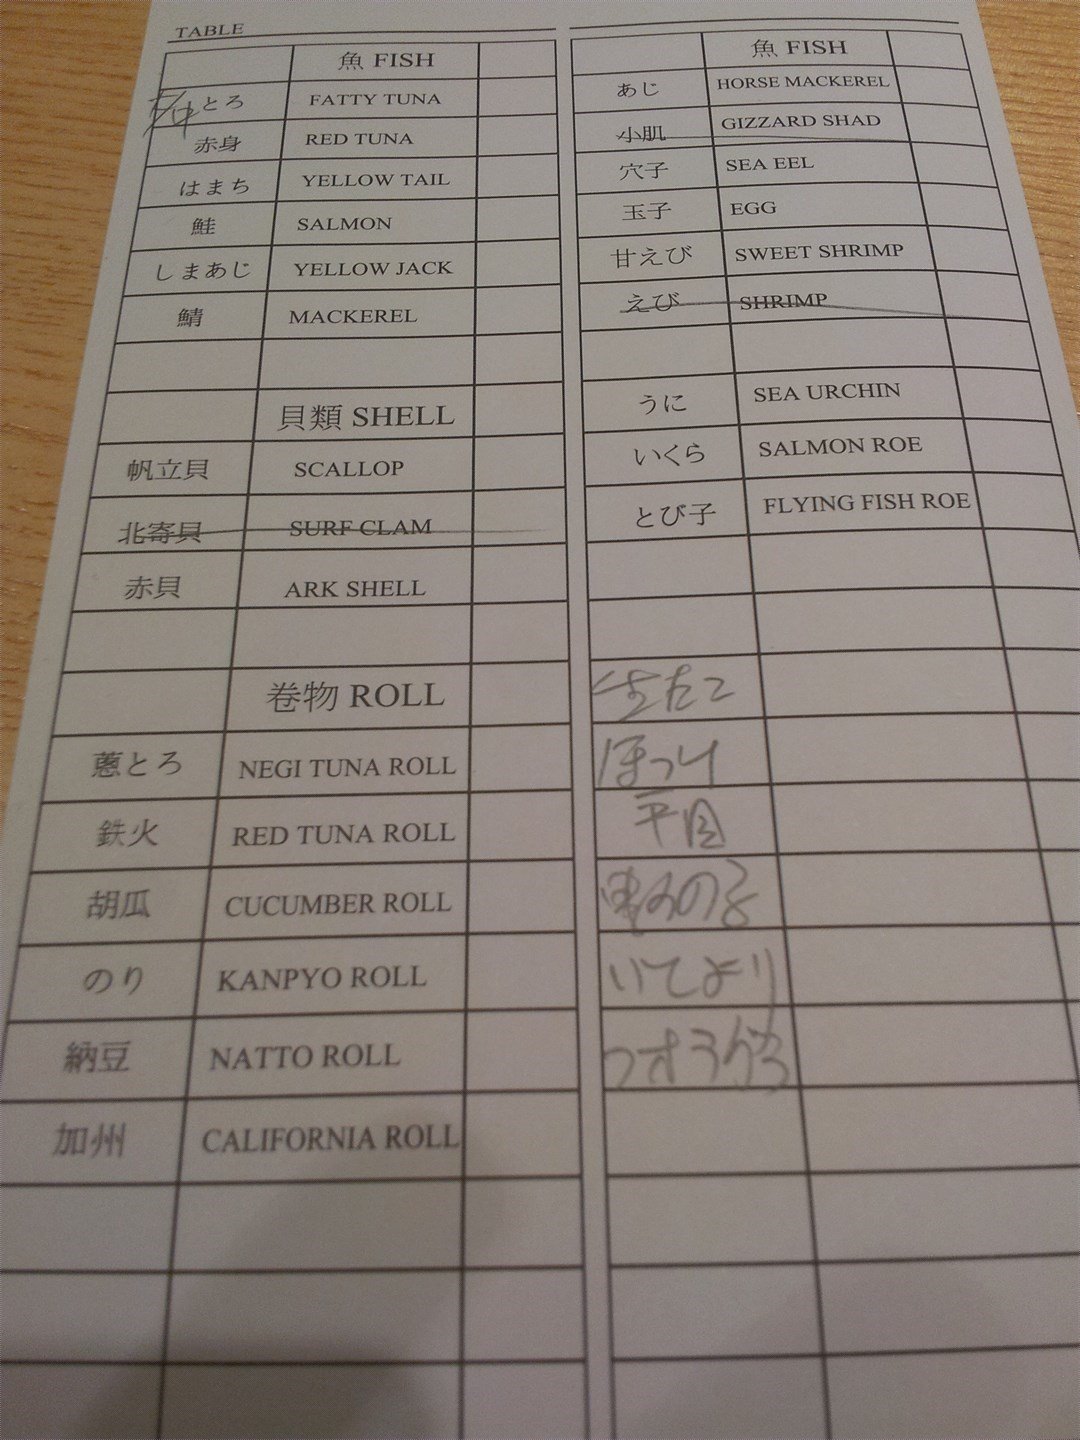 TABLE
魚 FISH
中とろ FATTY TUNA
赤身 RED TUNA
はまち YELLOW TAIL
鮭 SALMON
しまあじ YELLOW JACK
鯖 MACKEREL
貝類 SHELL
帆立貝 SCALLOP
北寄貝 SURF CLAM
赤貝 ARK SHELL
巻物 ROLL
葱とろ NEGI TUNA ROLL
鉄火 RED TUNA ROLL
胡瓜 CUCUMBER ROLL
のり KANPYO ROLL
納豆 NATTO ROLL
加州 CALIFORNIA ROLL
魚 FISH
あじ HORSE MACKEREL
小肌 GIZZARD SHAD
穴子 SEA EEL
玉子 EGG
甘えび SWEET SHRIMP
えび SHRIMP
うに SEA URCHIN
いくら SALMON ROE
とび子 FLYING FISH ROE
生たこ
平目